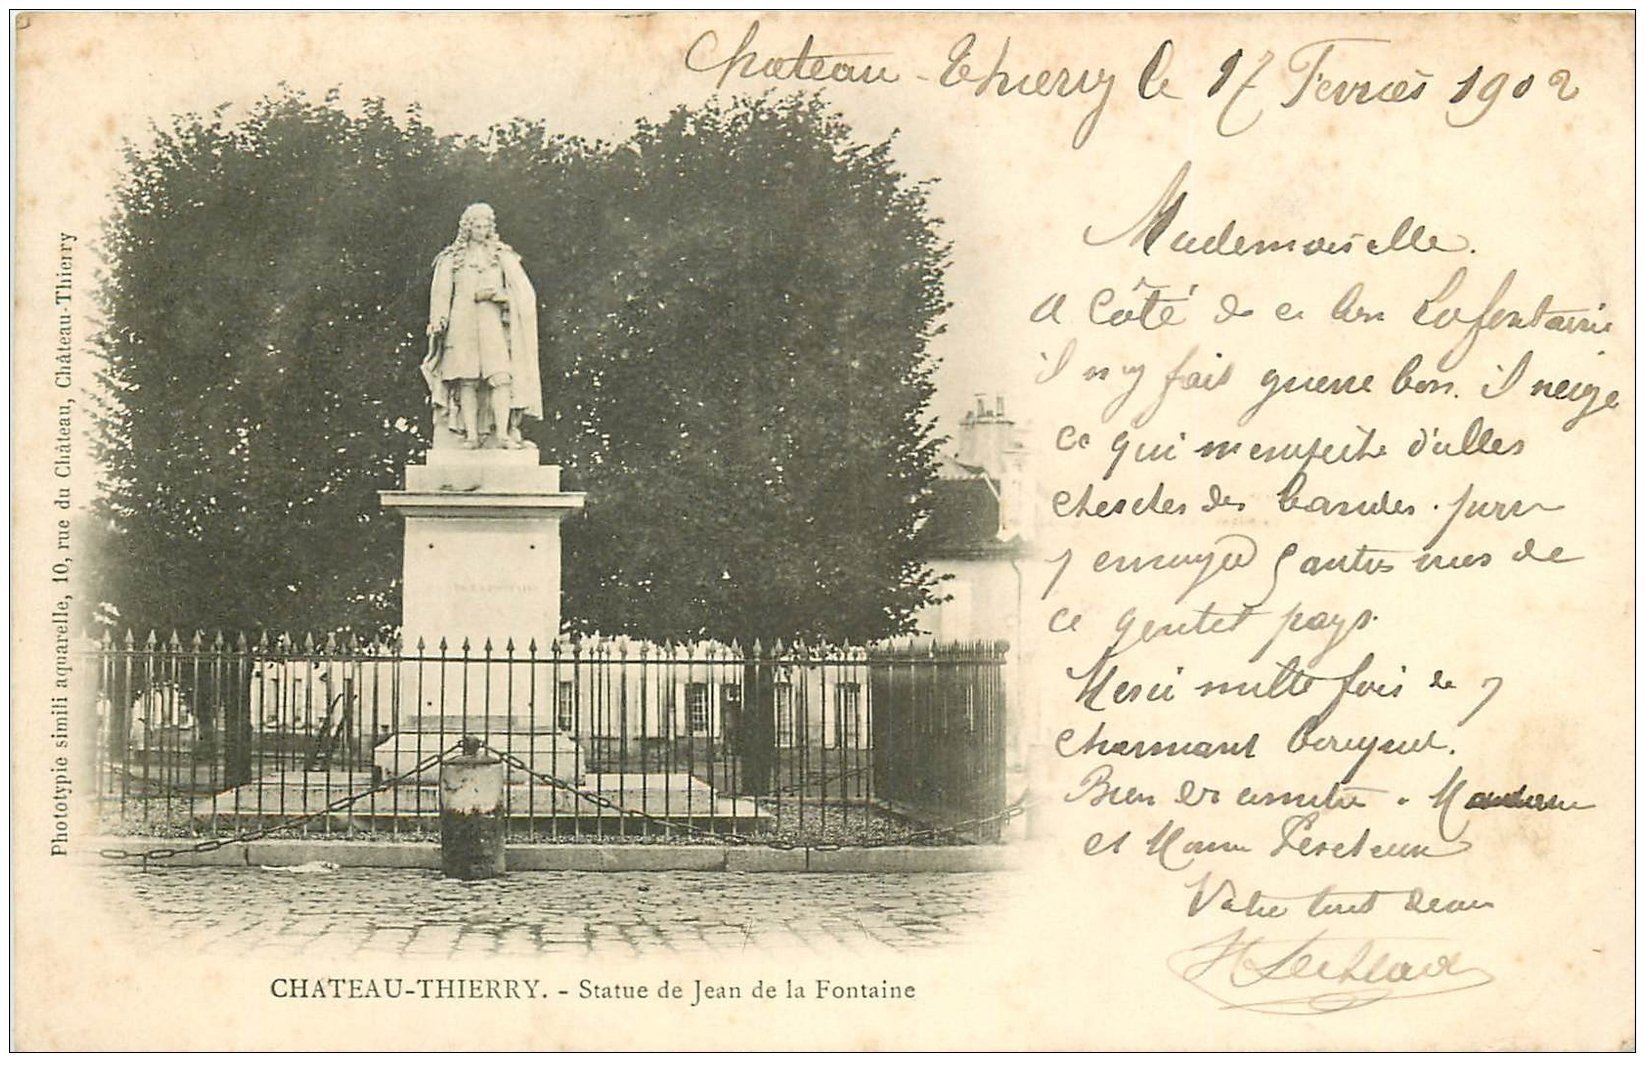 Chateau-Thierry le 17 Fevrier 1902
Mademoiselle.
A Côté de ce bon Lafontaine
il n y fait guerre bon. il neige
ce qui m'empeche d'alles
cherches des
envoyer autres vues de
ce gentil pays.
Merci mille fois de
charmant bouquet.
Bien des amities. Madame
et
Votre tout devoue
Phototypie simili aquarelle, 10, rue du Château, Château-Thierry
CHATEAU-THIERRY. - Statue de Jean de la Fontaine